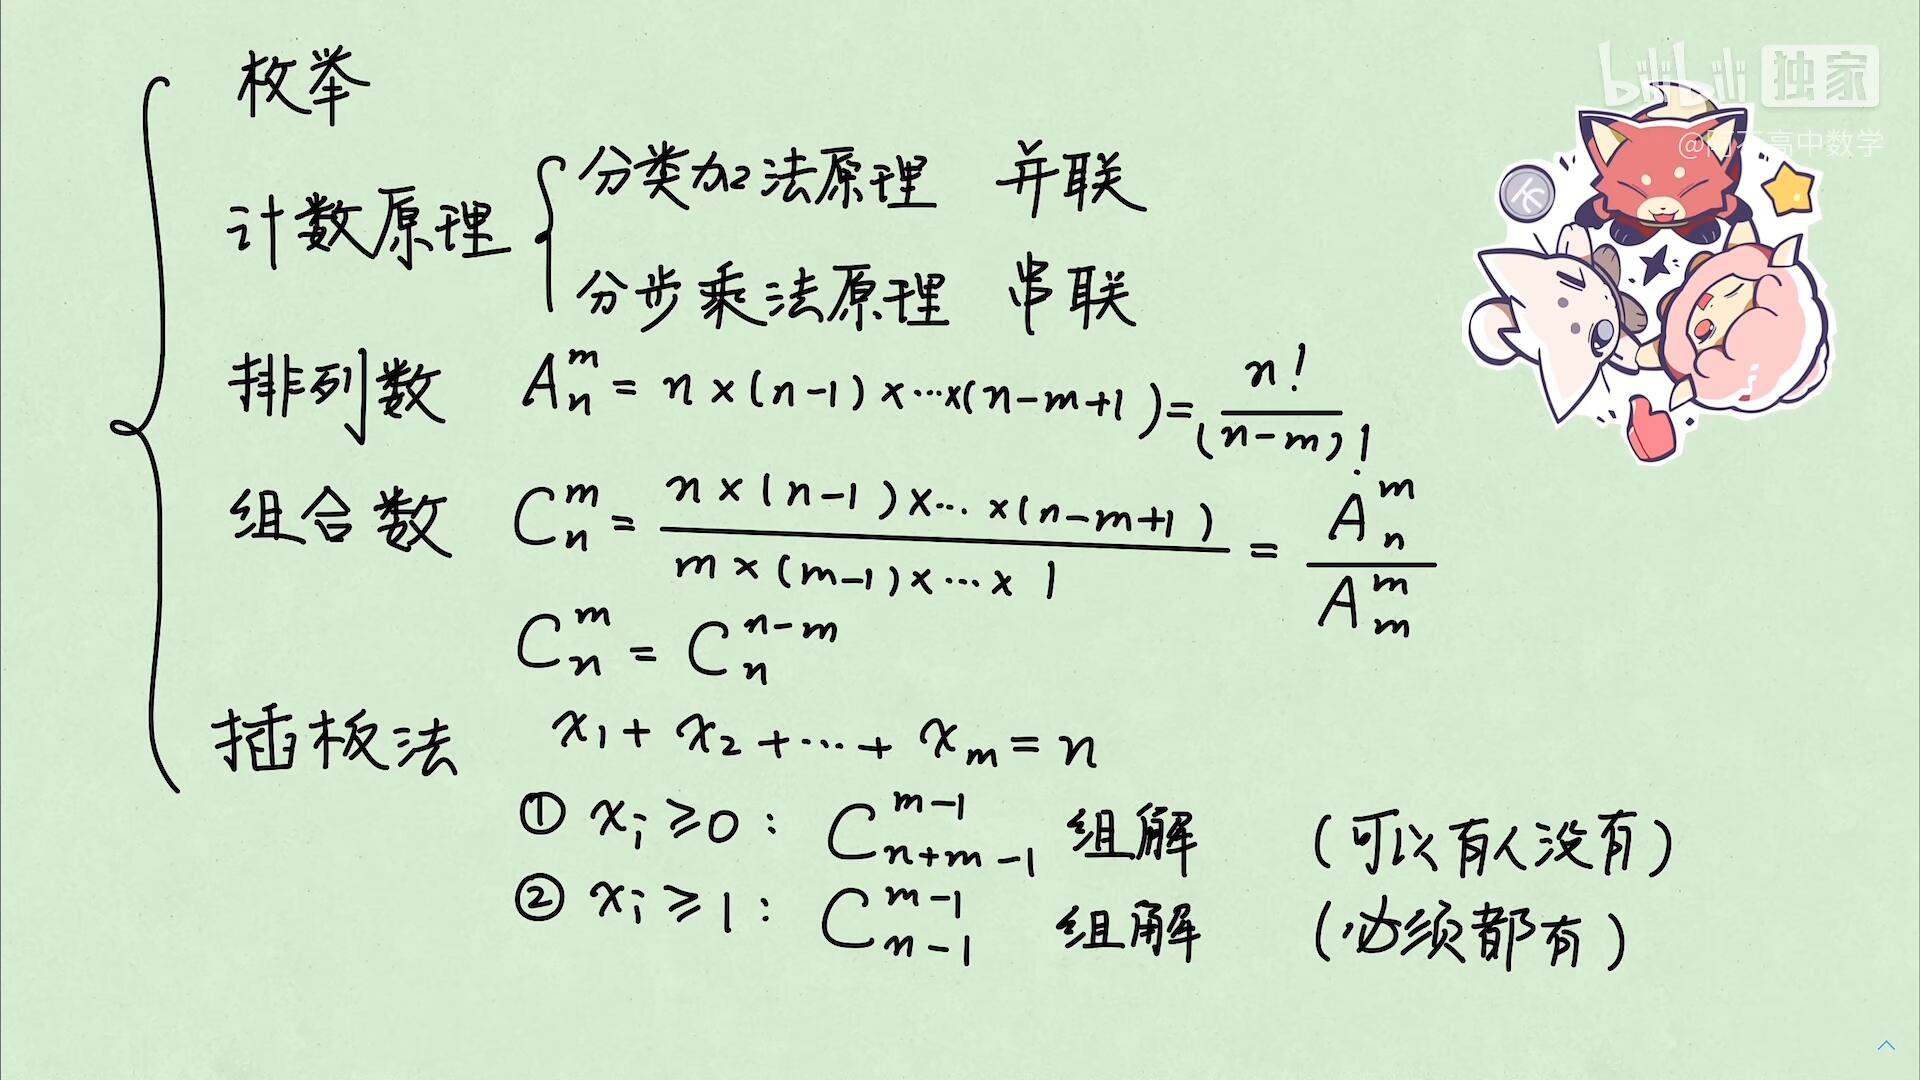 bilibili 独家
高中数学
枚举
计数原理
分类加法原理 并联
分步乘法原理 串联
排列数 A_n^m = n×(n-1)×…×(n-m+1) = n!/(n-m)!
组合数 C_n^m = n×(n-1)×…×(n-m+1)/m×(m-1)×…×1 = A_n^m/A_m^m
C_n^m = C_n^{n-m}
插板法 x₁+x₂+…+x_m=n
① x_i≥0: C_{n+m-1}^{m-1} 组解 (可以有人没有)
② x_i≥1: C_{n-1}^{m-1} 组解 (必须都有)